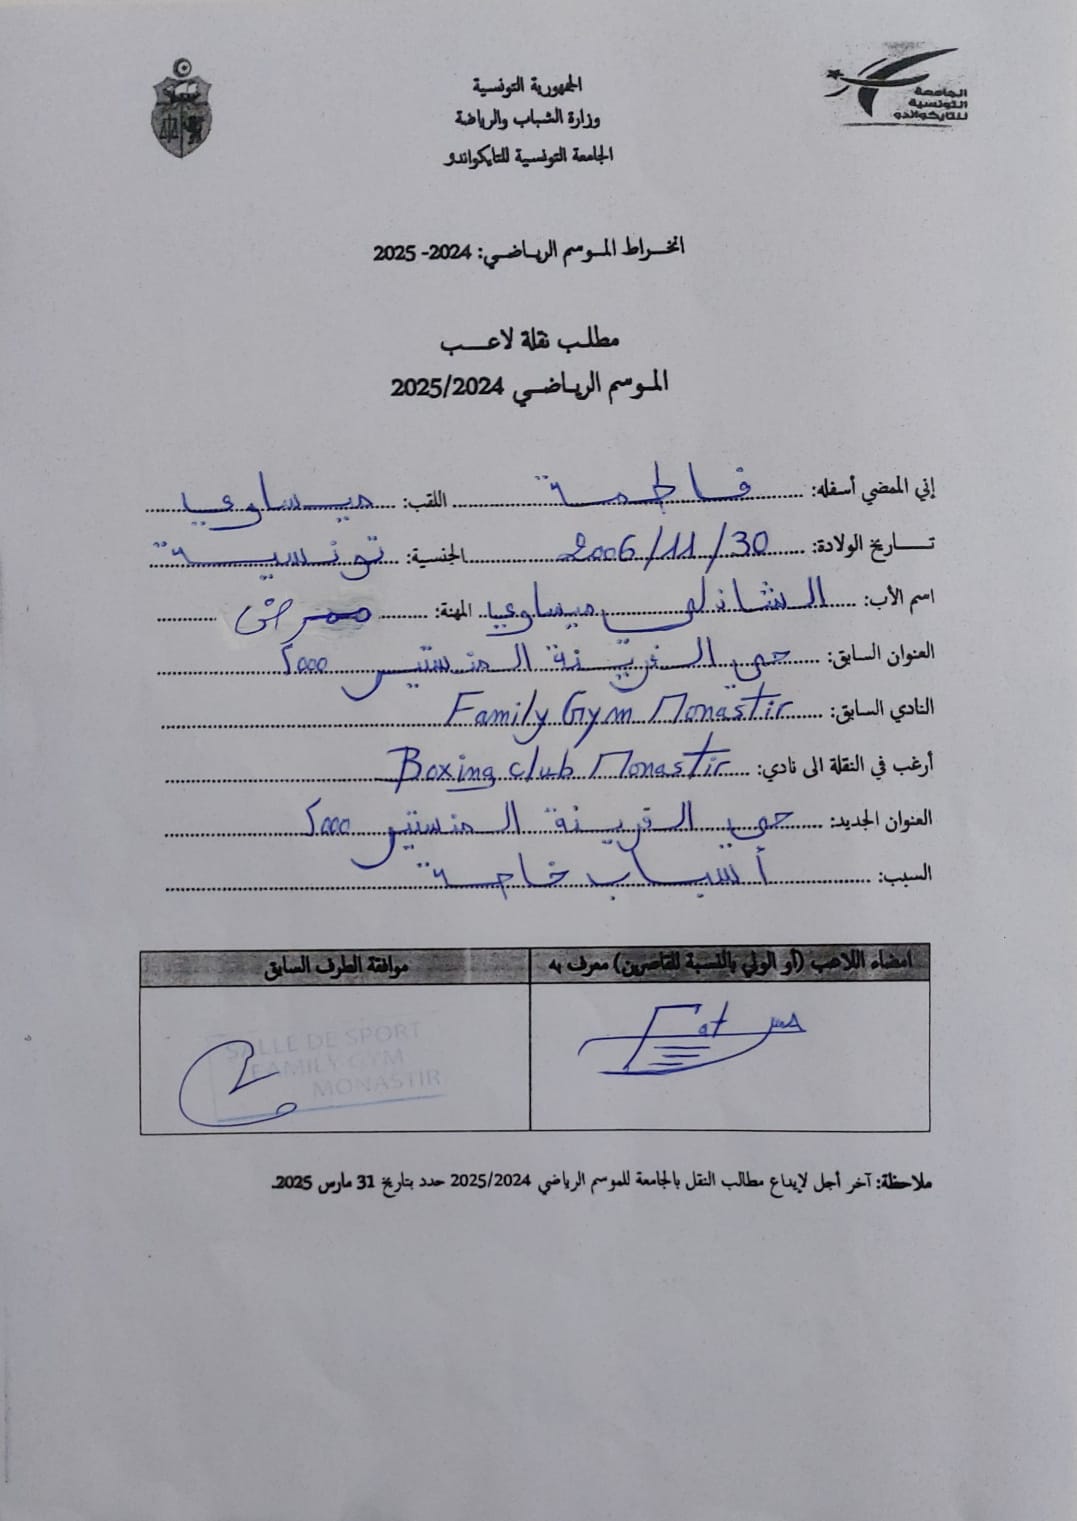 الجمهورية التونسية
وزارة الشباب والرياضة
الجامعة التونسية للتايكواندو
الجامعة
التونسية
للتايكواندو
انخراط الموسم الرياضي: 2024- 2025
مطلب نقلة لاعب
الموسم الرياضي 2025/2024
إني الممضي أسفله: فاطمة اللقب: ميساوي
تاريخ الولادة: 2006/11/30 الجنسية: تونسية
اسم الأب: الشاذلي ميساوي المهنة: ممرض
العنوان السابق: حي الفرينة المنستير 5000
النادي السابق: Family Gym Monastir
أرغب في النقلة الى نادي: Boxing club Monastir
العنوان الجديد: حي الفرينة المنستير 5000
السبب: أسباب خاصة
امضاء اللاعب (أو الولي بالنسبة للقاصرين) معرف به
موافقة الطرف السابق
SALLE DE SPORT
FAMILY GYM
MONASTIR
ملاحظة: آخر أجل لإيداع مطالب النقل بالجامعة للموسم الرياضي 2025/2024 حدد بتاريخ 31 مارس 2025.